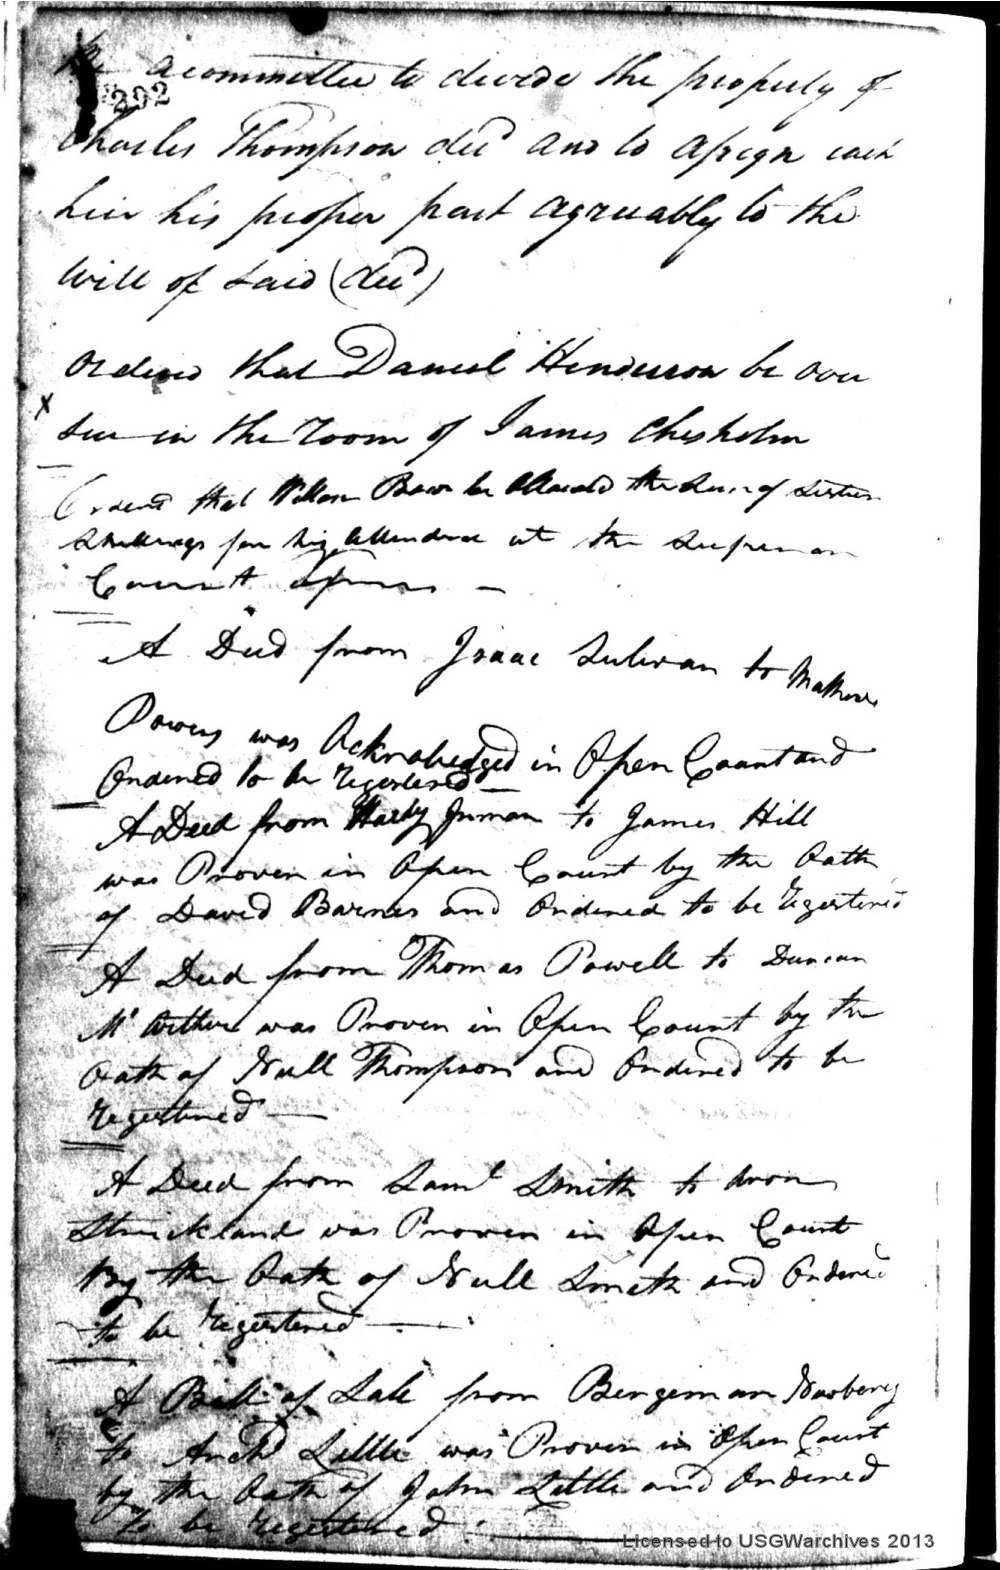 be a committee to devide the property of
202
Charles Thompson decd and to assign each
heir his proper part agreuably to the
Will of said (decd)
Ordered that Daniel Henderson be over
x
seer in the room of James Chesholm
Ordend that Willam be Allowed the Sum of sixteen
Shillings for his Attendance at the Supereor
Court
A Deed from Isaac Sulivan to Mathew
Powers was Acknolwedged in Open Court and
Ordened to be regestered
A Deed from Hardy Inman to James Hill
was Proven in Open Court by the Oath
of David Barnes and Ordened to be regestened
A Deed from Thomas Powell to Duncan
Mc Arthur was Proven in Open Court by the
Oath of Neill Thompson and Ordened to be
regestened
A Deed from Saml Smith to Aron
Strickland was Proven in Open Court
by the Oath of Neill Smeth and Ordened
to be regestened
A Bill of Sale from Bengeman Newbery
to Archd Little was Proven in Open Court
by the Oath of John Little and Ordened
to be regestened
Licensed to USGWarchives 2013